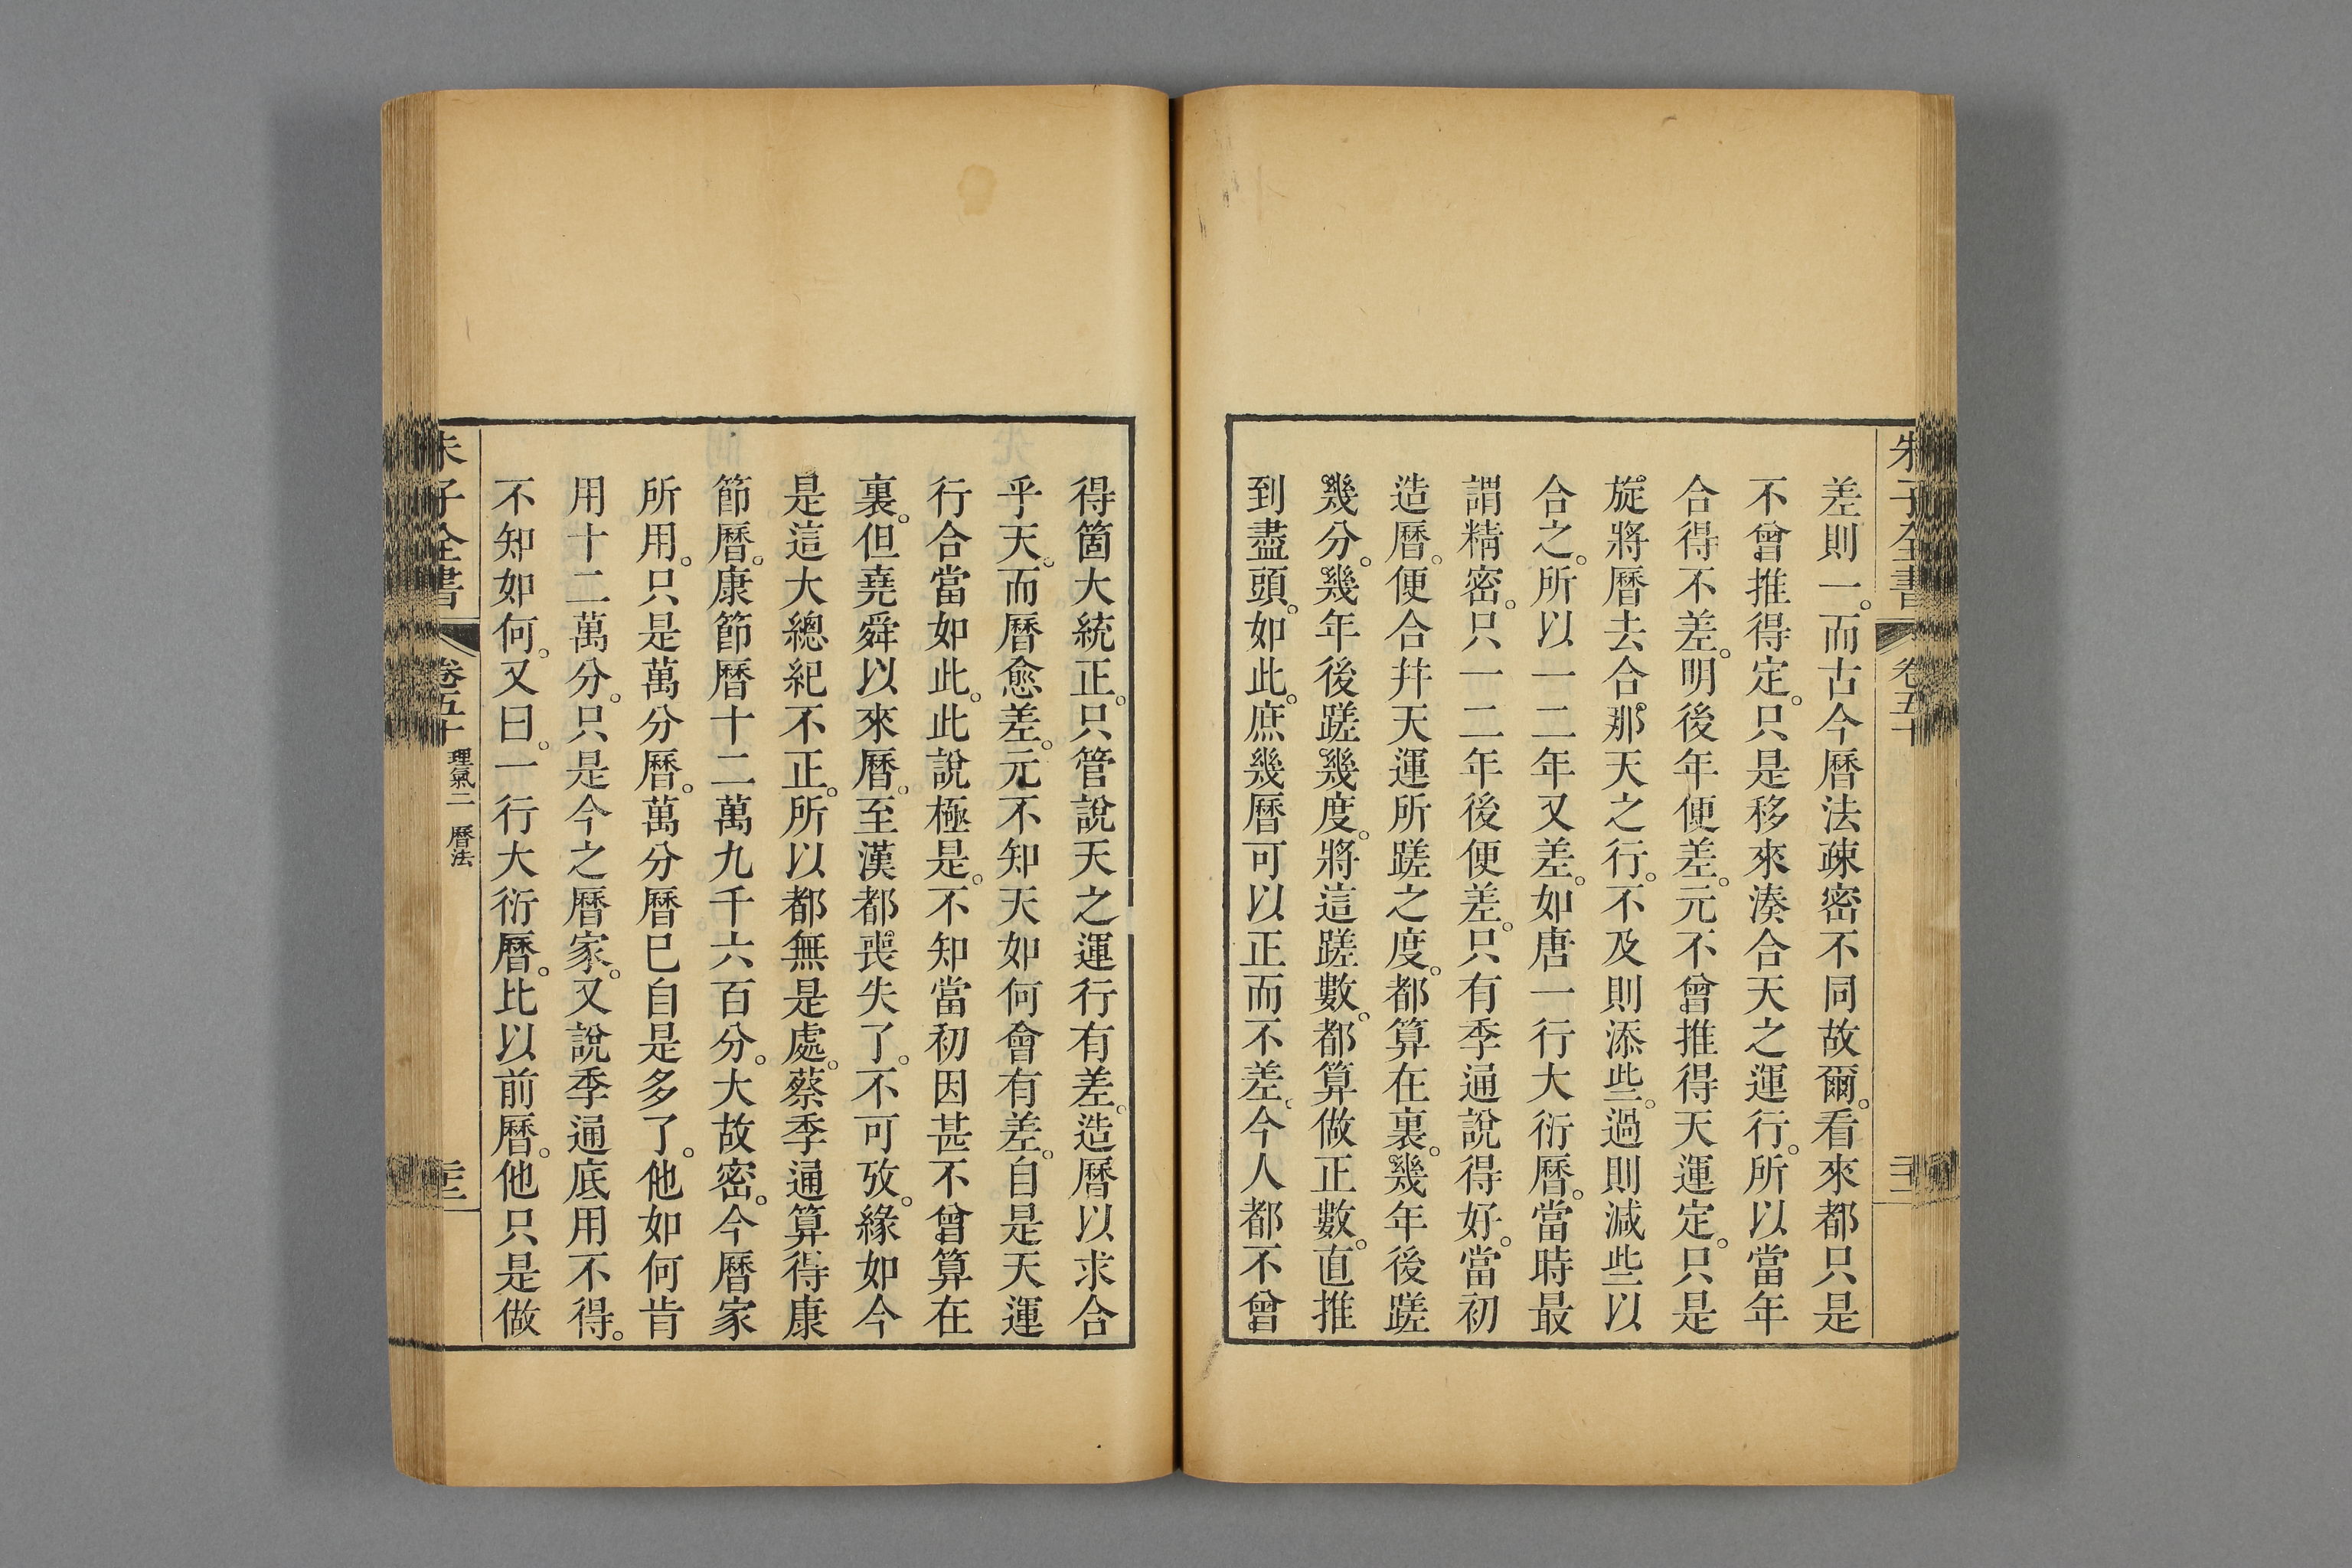 朱子全書 卷五十
差則一。而古今曆法疎密不同故爾。看來都只是
不曾推得定。只是移來湊合天之運行。所以當年
合得不差。明後年便差。元不曾推得天運定。只是
旋將曆去合那天之行。不及則添些。過則減些以
合之。所以一二年又差。如唐一行大衍曆。當時最
謂精密。只一二年後便差。只有季通說得好。當初
造曆。便合幷天運所蹉之度。都算在裏。幾年後蹉
幾分。幾年後蹉幾度。將這蹉數。都算做正數。直推
到盡頭。如此。庶幾曆可以正而不差。今人都不曾
得箇大統正。只管說天之運行有差。造曆以求合
乎天。而曆愈差。元不知天如何會有差。自是天運
行合當如此。此說極是。不知當初因甚不曾算在
裏。但堯舜以來曆。至漢都喪失了。不可攷。緣如今
是這大總紀不正。所以都無是處。蔡季通算得康
節曆。康節曆十二萬九千六百分。大故密。今曆家
所用。只是萬分曆。萬分曆已自是多了。他如何肯
用十二萬分。只是今之曆家。又說季通底用不得。
不知如何。又曰。一行大衍曆。比以前曆。他只是做
朱子全書 卷五十 理氣二 曆法